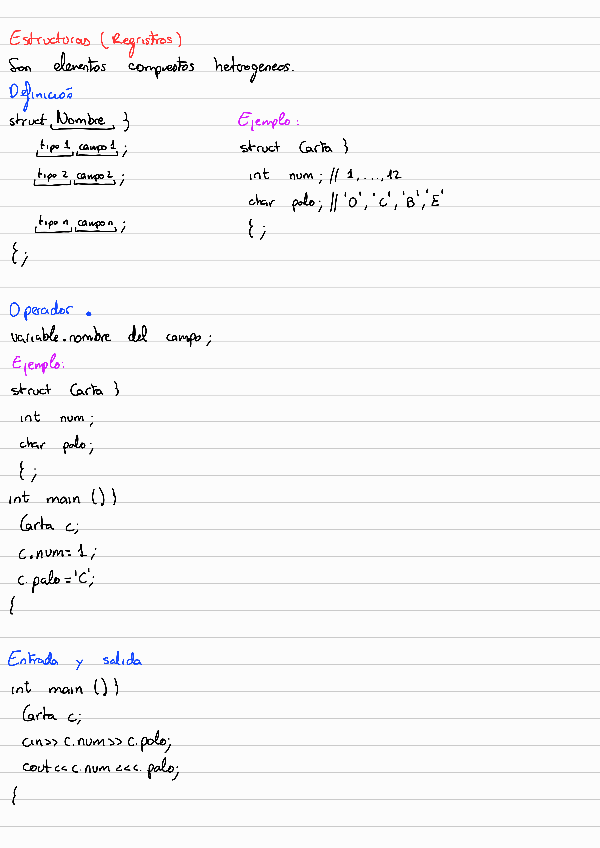 Estructuras (Registros)
Son elementos compuestos heterogeneos.
Definición
struct Nombre }
tipo 1 campo 1 ;
tipo 2 campo 2 ;
tipo n campo n ;
{ ;
Ejemplo :
struct Carta }
int num ; // 1, ..., 12
char palo ; // 'O', 'C', 'B', 'E'
{ ;
Operador .
variable.nombre del campo ;
Ejemplo:
struct Carta }
int num ;
char palo ;
{ ;
int main () }
Carta c;
c.num= 1 ;
c.palo = 'C';
{
Entrada y salida
int main () }
Carta c;
cin>> c.num>> c.palo;
cout<< c.num <<c.palo;
{